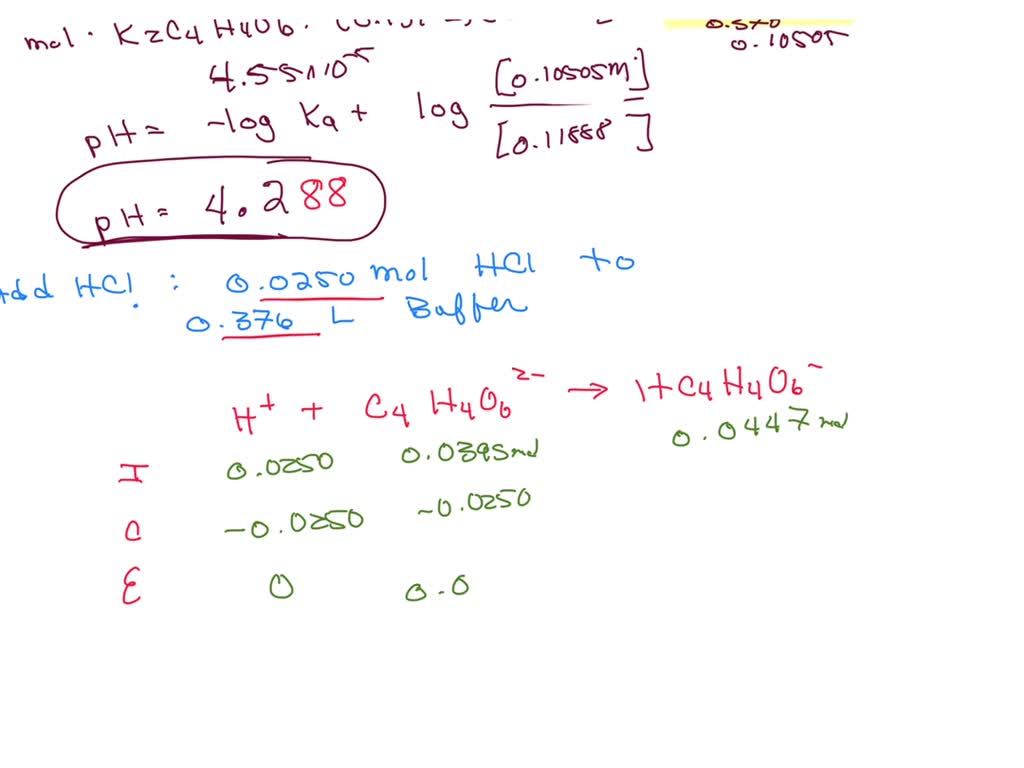 mol. K2C4H4O6.
0.10505
4.55x10^-5
pH = -log Ka + log [0.10505M] / [0.11888]
pH = 4.288
Add HCl : 0.0250 mol HCl to
0.376 L Buffer
H+ + C4H4O6^2- → HC4H4O6^-
I 0.0250 0.0395mol 0.0447 mol
C -0.0250 -0.0250
E 0 0.0